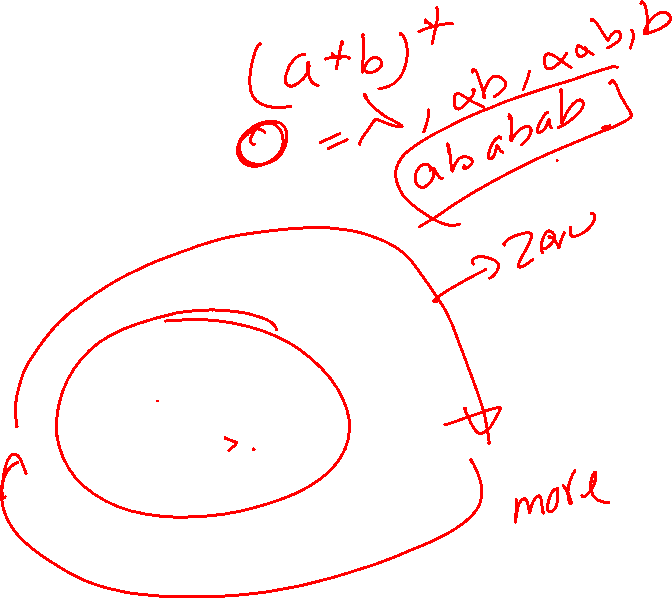 (a+b)*
= λ, ab, aab, b
ababab
Zero
more